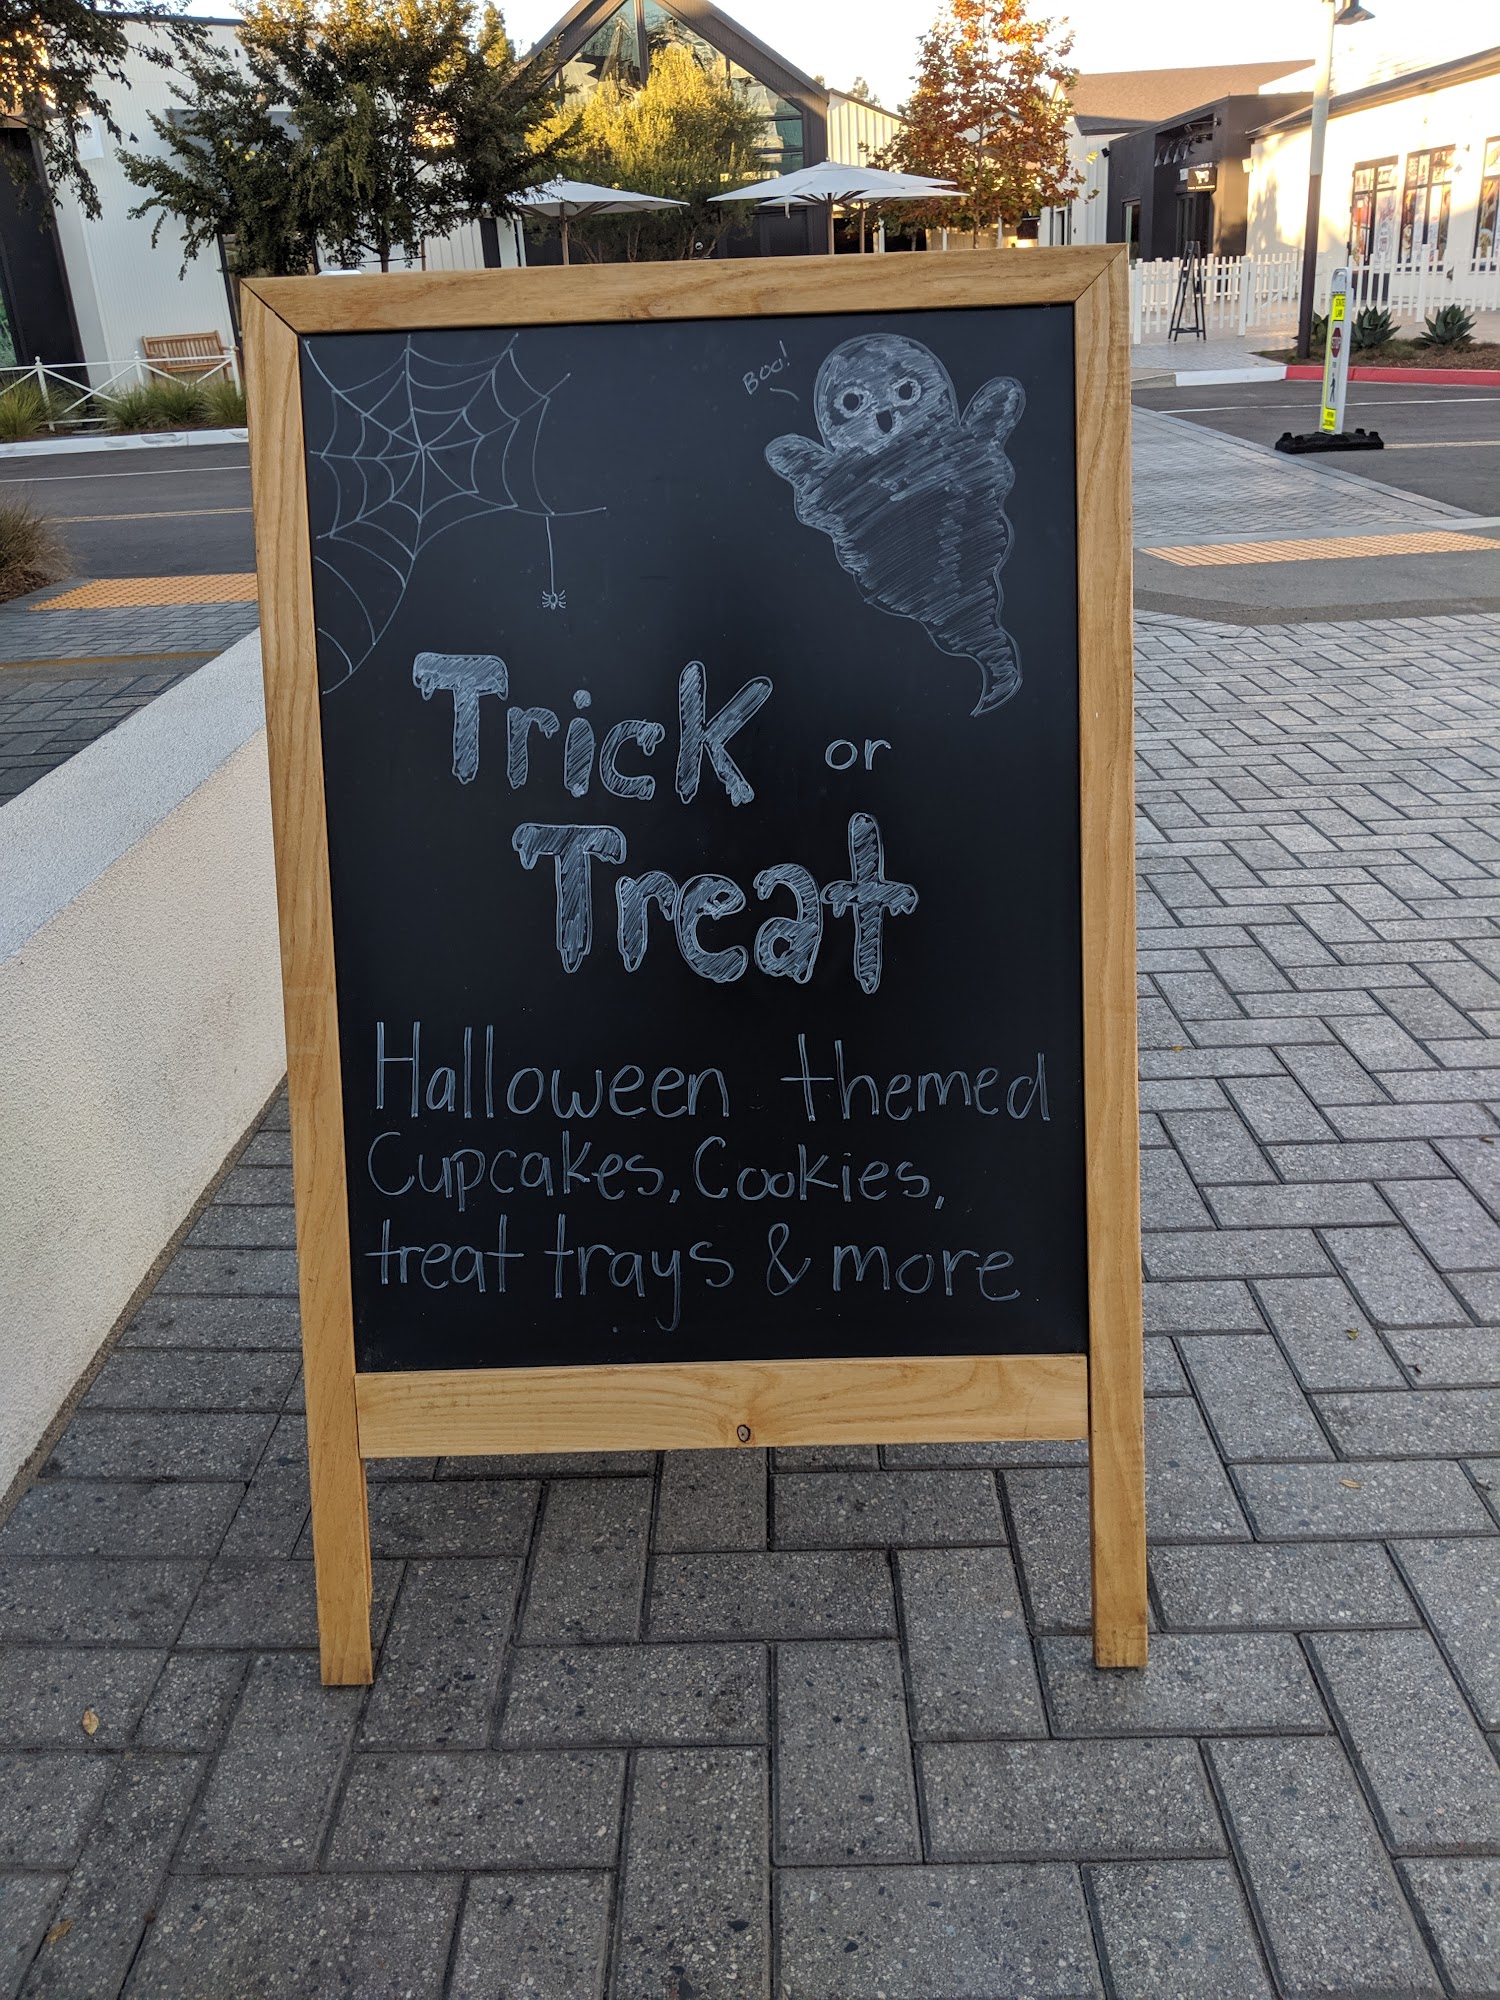 Boo!
Trick or
Treat
Halloween themed
Cupcakes, Cookies,
treat trays & more
STATE
LAW
STOP